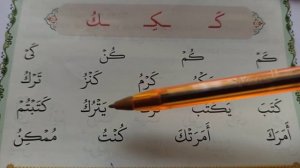 كَـ ـكِـ ـكُ
كَمْ كُمْ كُنْ كَيْ
كَرْمُ كَنْزُ تَرْكُ
كَتَبَ يَكْتُبُ يَتْرُكُ كَتَبْتُمْ
أَمَرَكَ أَمَرَتْكَ كُنْتُ مُمْكِنُ